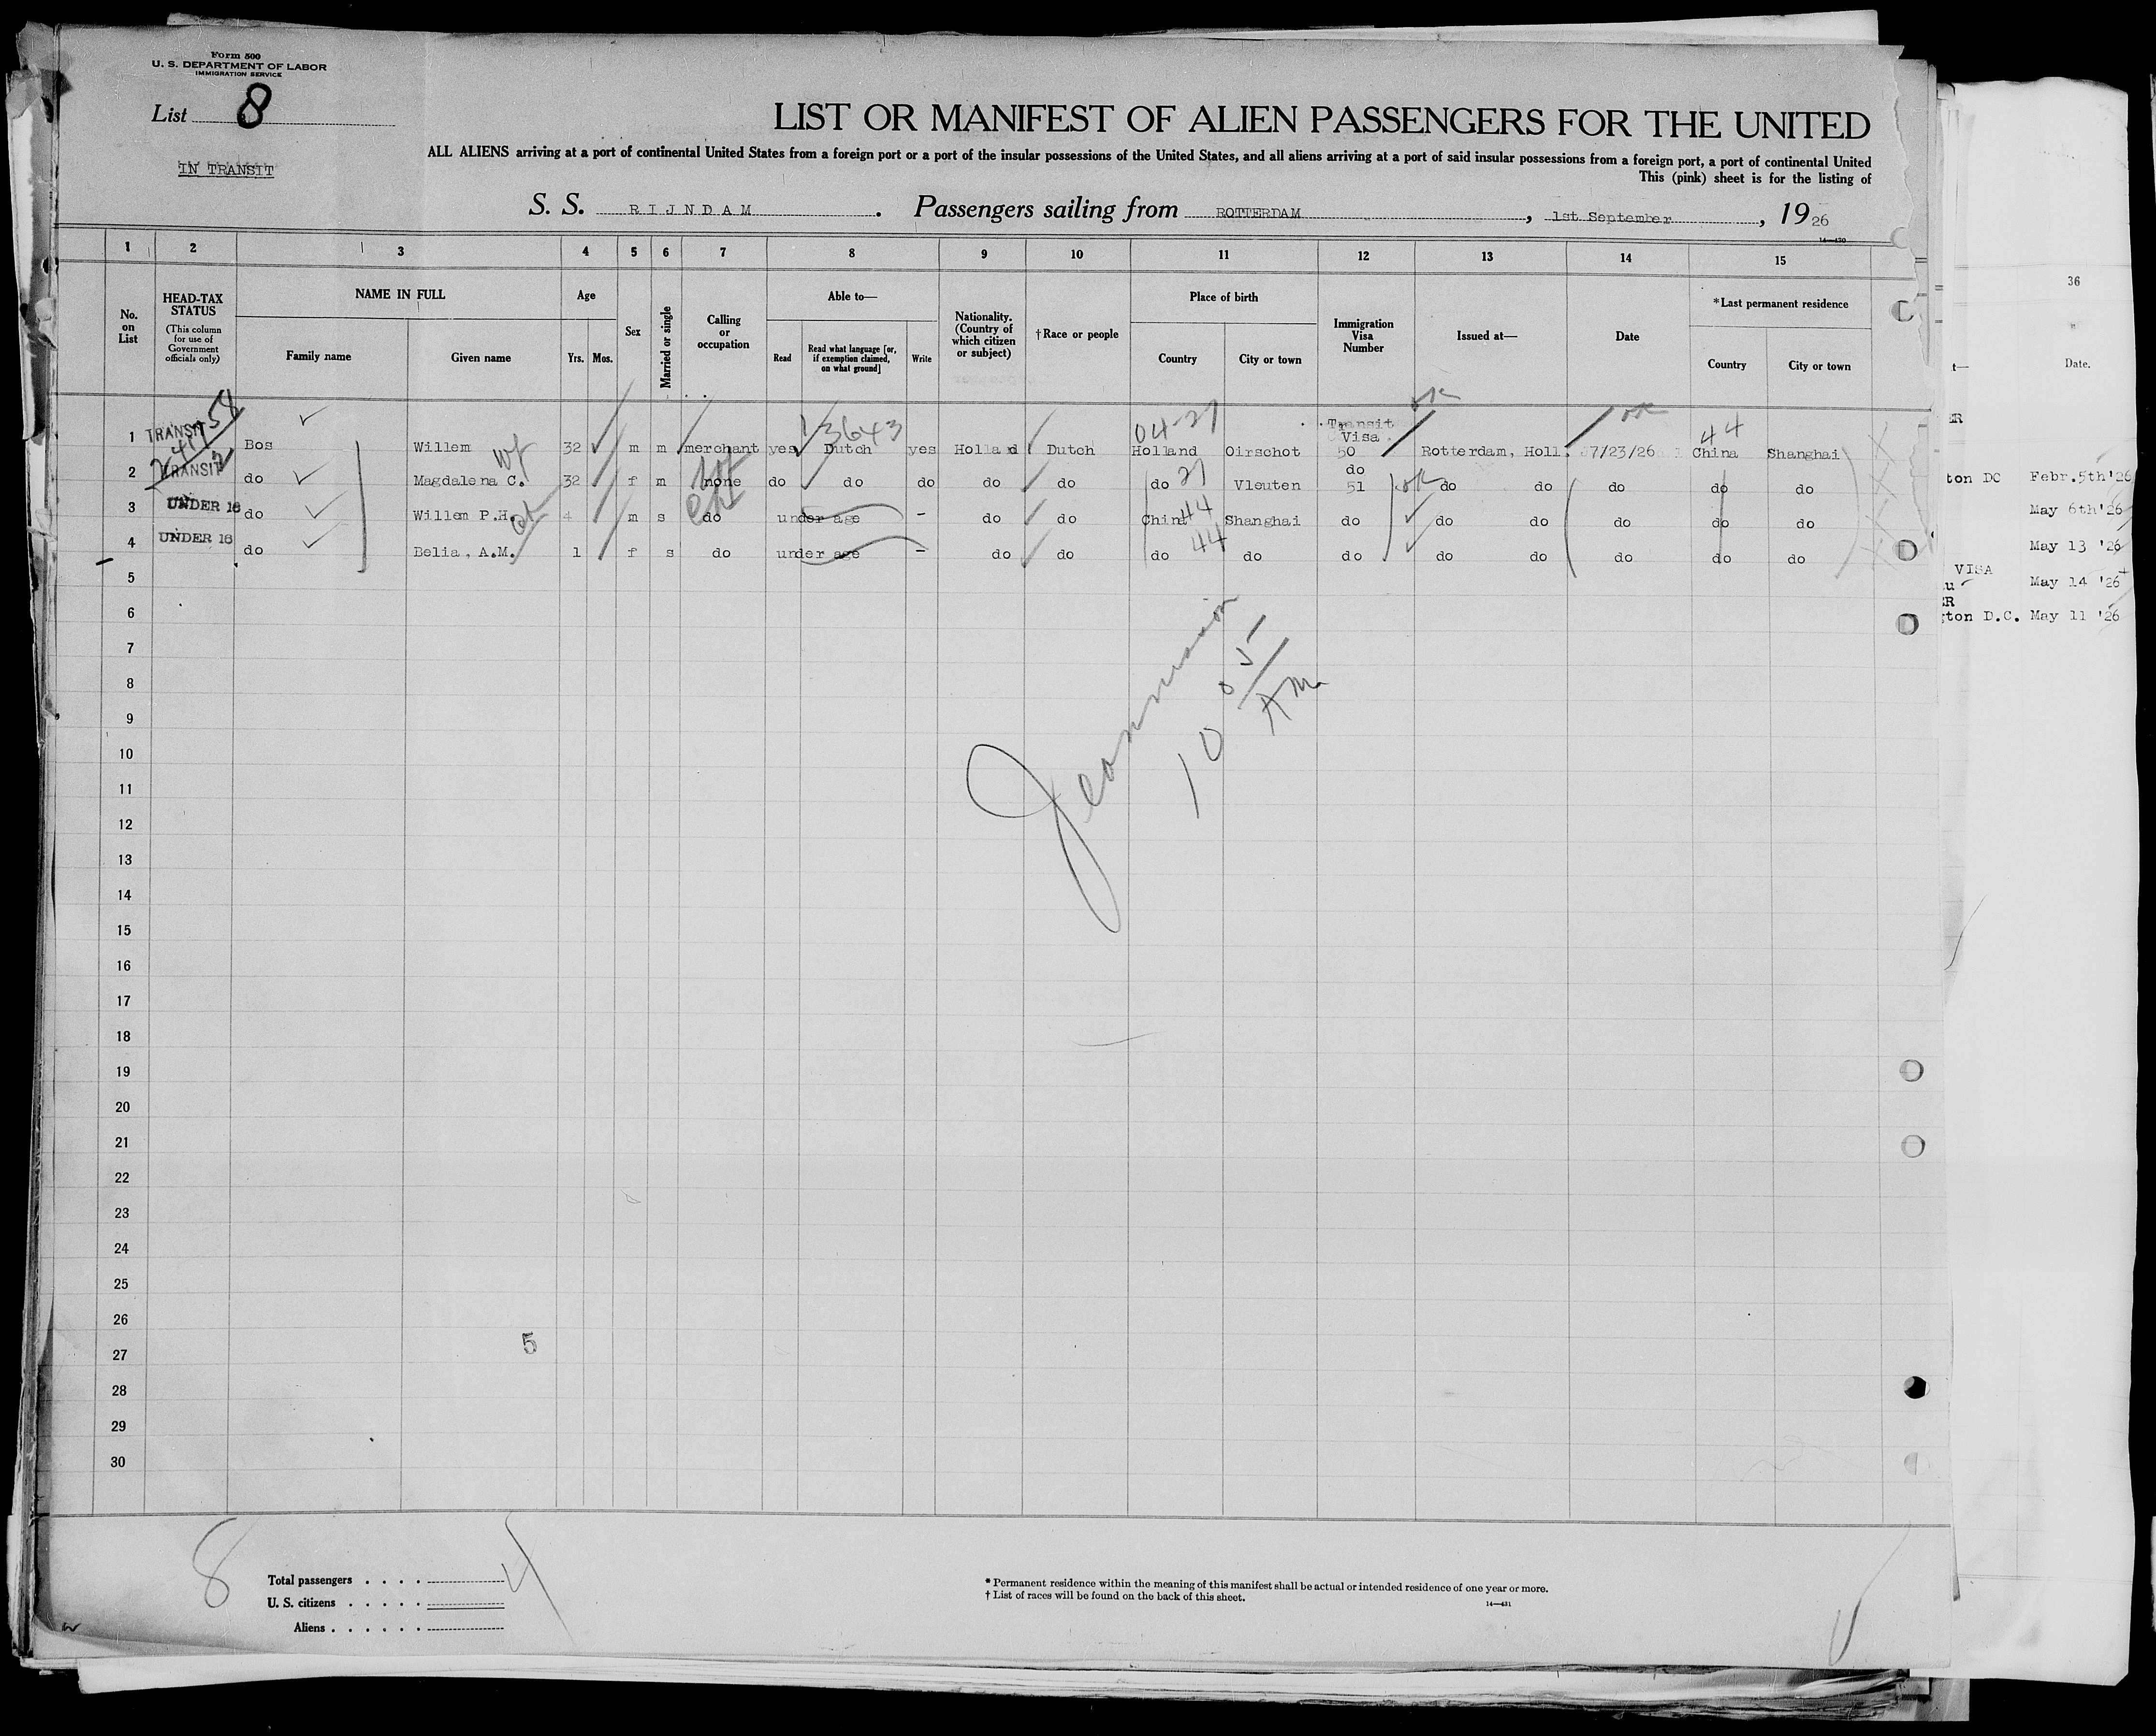 Form 500
U. S. DEPARTMENT OF LABOR
IMMIGRATION SERVICE
List 8
IN TRANSIT
LIST OR MANIFEST OF ALIEN PASSENGERS FOR THE UNITED
ALL ALIENS arriving at a port of continental United States from a foreign port or a port of the insular possessions of the United States, and all aliens arriving at a port of said insular possessions from a foreign port, a port of continental United
This (pink) sheet is for the listing of
S. S. RIJNDAM. Passengers sailing from ROTTERDAM, 1st September, 1926
14—430
1 2 3 4 5 6 7 8 9 10 11 12 13 14 15
No. on List
HEAD-TAX STATUS
(This column for use of Government officials only)
NAME IN FULL
Family name
Given name
Age
Yrs. Mos.
Sex
Married or single
Calling or occupation
Able to—
Read
Read what language [or, if exemption claimed, on what ground]
Write
Nationality. (Country of which citizen or subject)
†Race or people
Place of birth
Country
City or town
Immigration Visa Number
Issued at—
Date
*Last permanent residence
Country
City or town
1 TRANSIT Bos Willem 32 m m merchant yes Dutch yes Holland Dutch Holland Oirschot Transit Visa 50 Rotterdam, Holl. 7/23/26 China Shanghai
13643
04-27
ok
ok
44
2 TRANSIT do Magdalena C. wf 32 f m none do do do do do do 27 Vleuten do 51 ok do do do do do
3 UNDER 16 do Willem P.H. 4 m s do under age - do do China 44 Shanghai do do do do do do
4 UNDER 16 do Belia, A.M. 1 f s do under age - do do do 44 do do do do do do do
5
6
7
8
9
10
11
12
13
14
15
16
17
18
19
20
21
22
23
24
25
26
27
28
29
30
10 05
AM
5
8
Total passengers . . . . 4
U. S. citizens . . . . .
Aliens . . . . . .
* Permanent residence within the meaning of this manifest shall be actual or intended residence of one year or more.
† List of races will be found on the back of this sheet.
14—431
36
Date.
ton DC Febr.5th'26
May 6th'26
May 13 '26
VISA
May 14 '26
ton D.C. May 11 '26